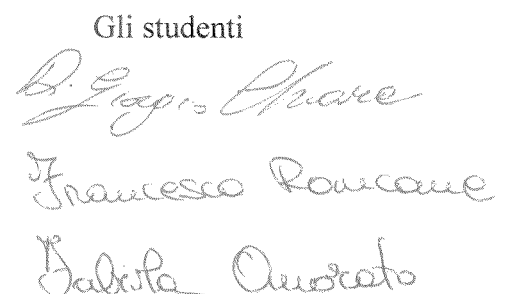 Gli studenti
Di Giorgio Chiara
Francesco Romcane
Fabiola Onorato